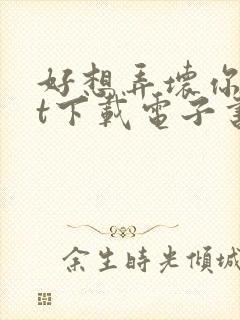 好想弄壞你
t下載電子書
余生時光傾城